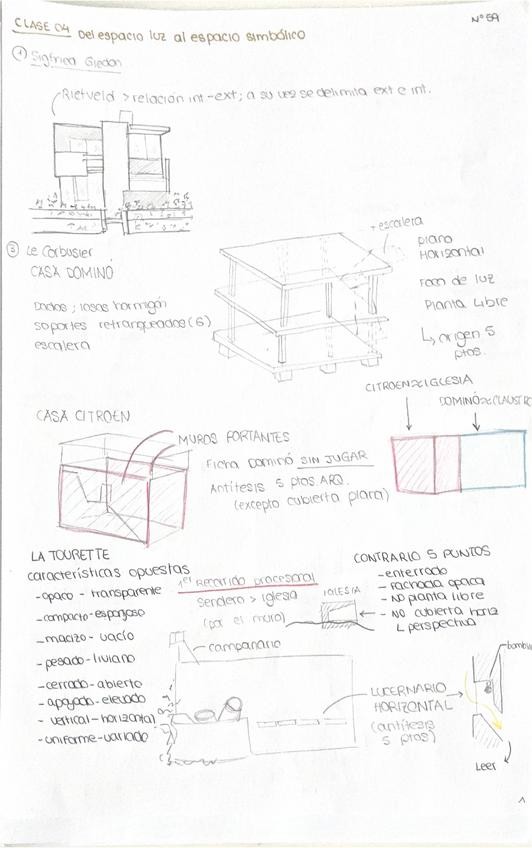 CLASE 04 Del espacio luz al espacio simbólico
Nº 59
① Sigfried Giedon
Rietveld > relación int-ext; a su vez se delimita ext e int.
② Le Corbusier
CASA DOMINÓ
Dados; losas hormigón
soportes retranqueados (6)
escalera
+ escalera
plano
Horizontal
Foco de luz
Planta Libre
↳ origen 5
ptos.
CASA CITROEN
MUROS PORTANTES
Ficha Dominó SIN JUGAR
Antítesis 5 ptos ARQ.
(excepto cubierta plana)
CITROEN ≈ IGLESIA
DOMINÓ ≈ CLAUSTRO
LA TOURETTE
características opuestas
- opaco - transparente
- compacto - esponjoso
- macizo - vacío
- pesado - liviano
- cerrado - abierto
- apoyado - elevado
- vertical - horizontal
- uniforme - variado
1er Recorrido procesional
Sendero > Iglesia
(por el muro)
IGLESIA
CONTRARIO 5 PUNTOS
- enterrado
- fachada opaca
- NO planta libre
- NO cubierta horiz
↳ perspectiva
campanario
LUCERNARIO
HORIZONTAL
(antítesis
5 ptos)
Leer